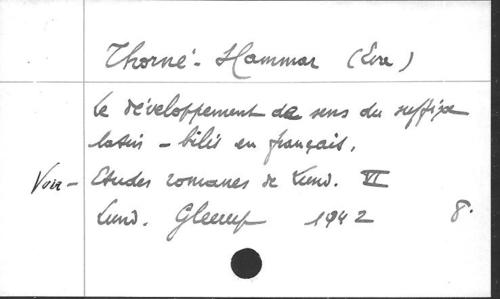 Thorné-Hammar (Eva)
Le développement de sens du suffixe
latin -bilis en français.
Voir - Etudes romanes de Lund. VI
Lund. Gleerup 1942 8.